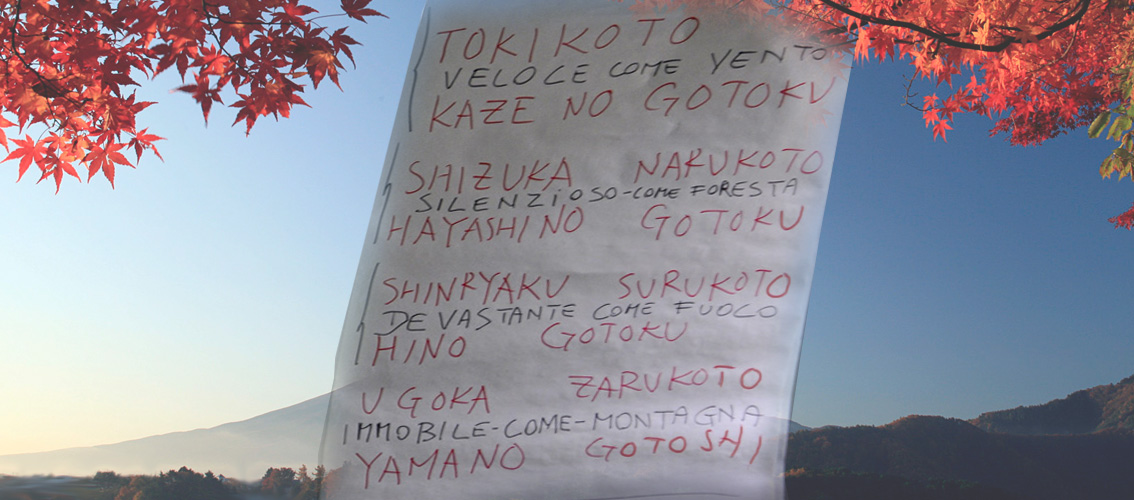 TOKIKOTO
VELOCE COME VENTO
KAZE NO GOTOKU
SHIZUKA NARUKOTO
SILENZIOSO-COME FORESTA
HAYASHINO GOTOKU
SHINRYAKU SURUKOTO
DEVASTANTE COME FUOCO
HINO GOTOKU
UGOKA ZARUKOTO
IMMOBILE-COME-MONTAGNA
YAMANO GOTOSHI